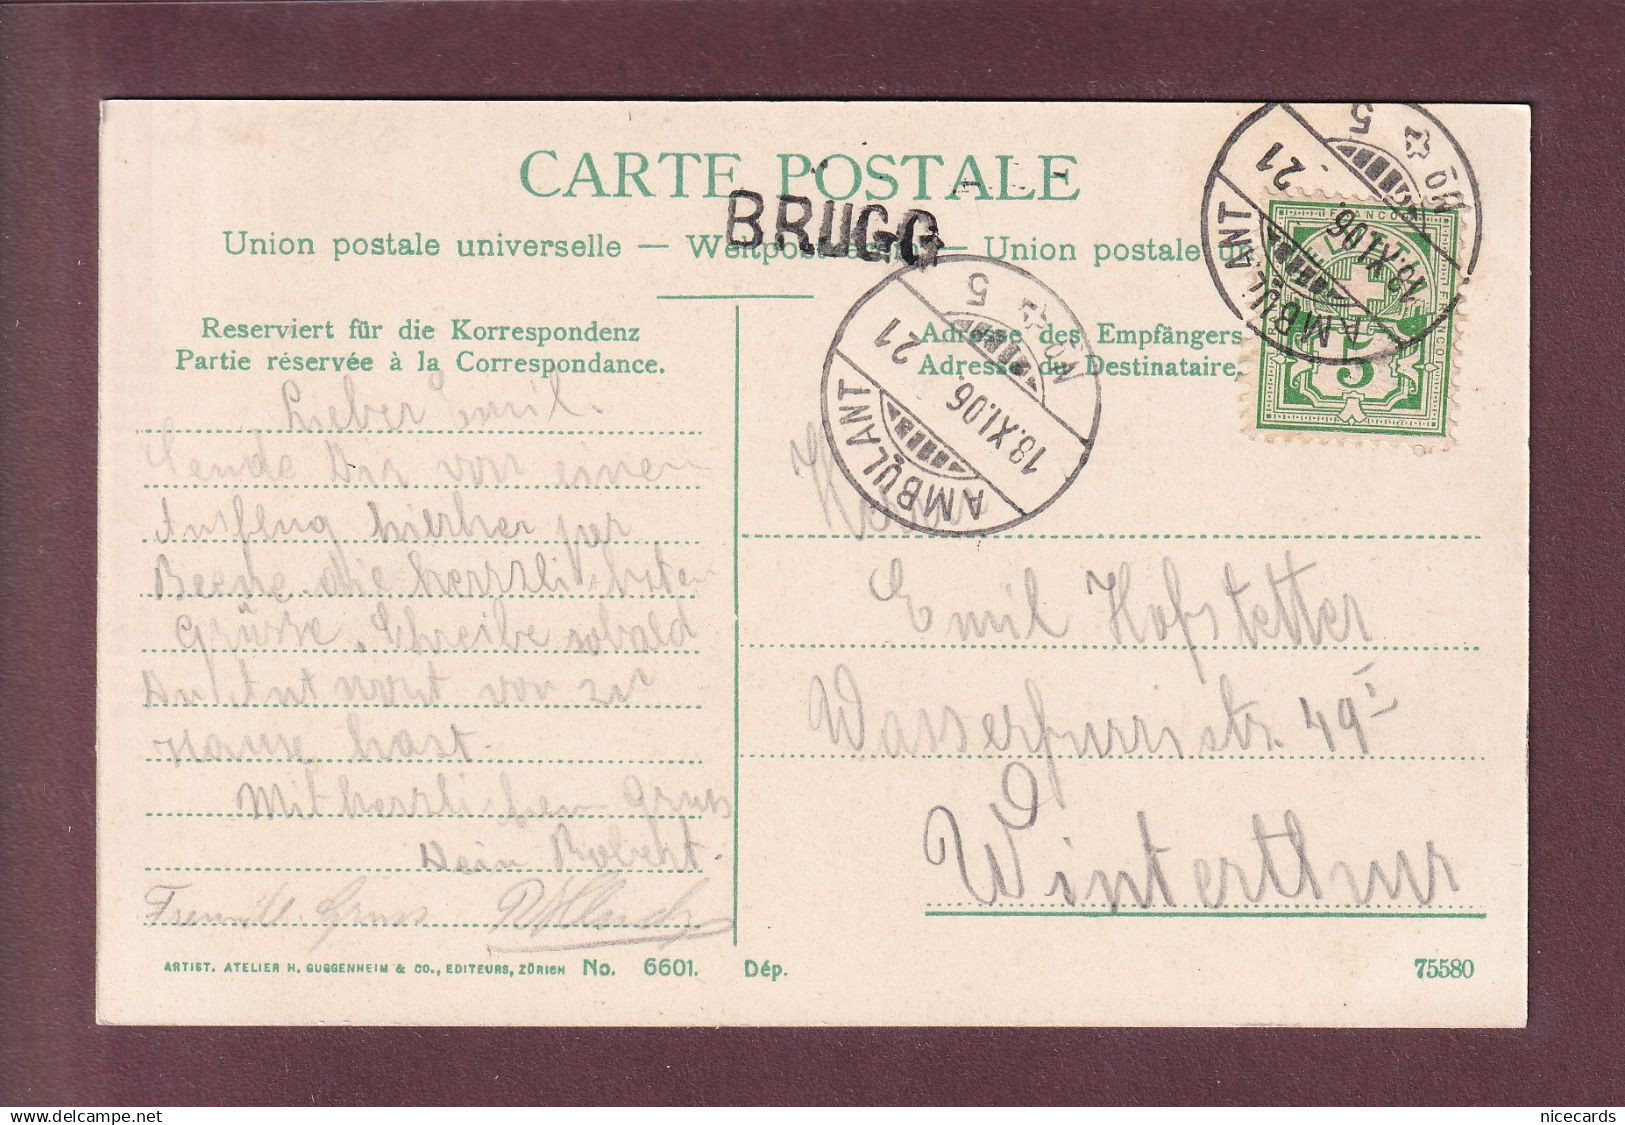 CARTE POSTALE
BRUGG
Union postale universelle — Weltpostverein — Union postale un
Reserviert für die Korrespondenz
Partie réservée à la Correspondance.
Adresse des Empfängers
Adresse du Destinataire.
AMBULANT
No 5
18.XI.06. 21
AMBULANT
No 5
18.XI.06 21
FRANCO
5
Lieber Emil.
Sende Dir von einem
Ausflug hierher per
die herzlichsten
Grüsse. Schreibe sobald
Antwort von zu
Hause hast.
Mit herzlichen Gruss
Dein Robert.
Freundl. Gruss
Herrn
Emil Hofstetter
Wasserfurristr. 49 I
Winterthur
ARTIST. ATELIER H. GUGGENHEIM & CO., EDITEURS, ZÜRICH No. 6601. Dép. 75580
delcampe.net
nicecards